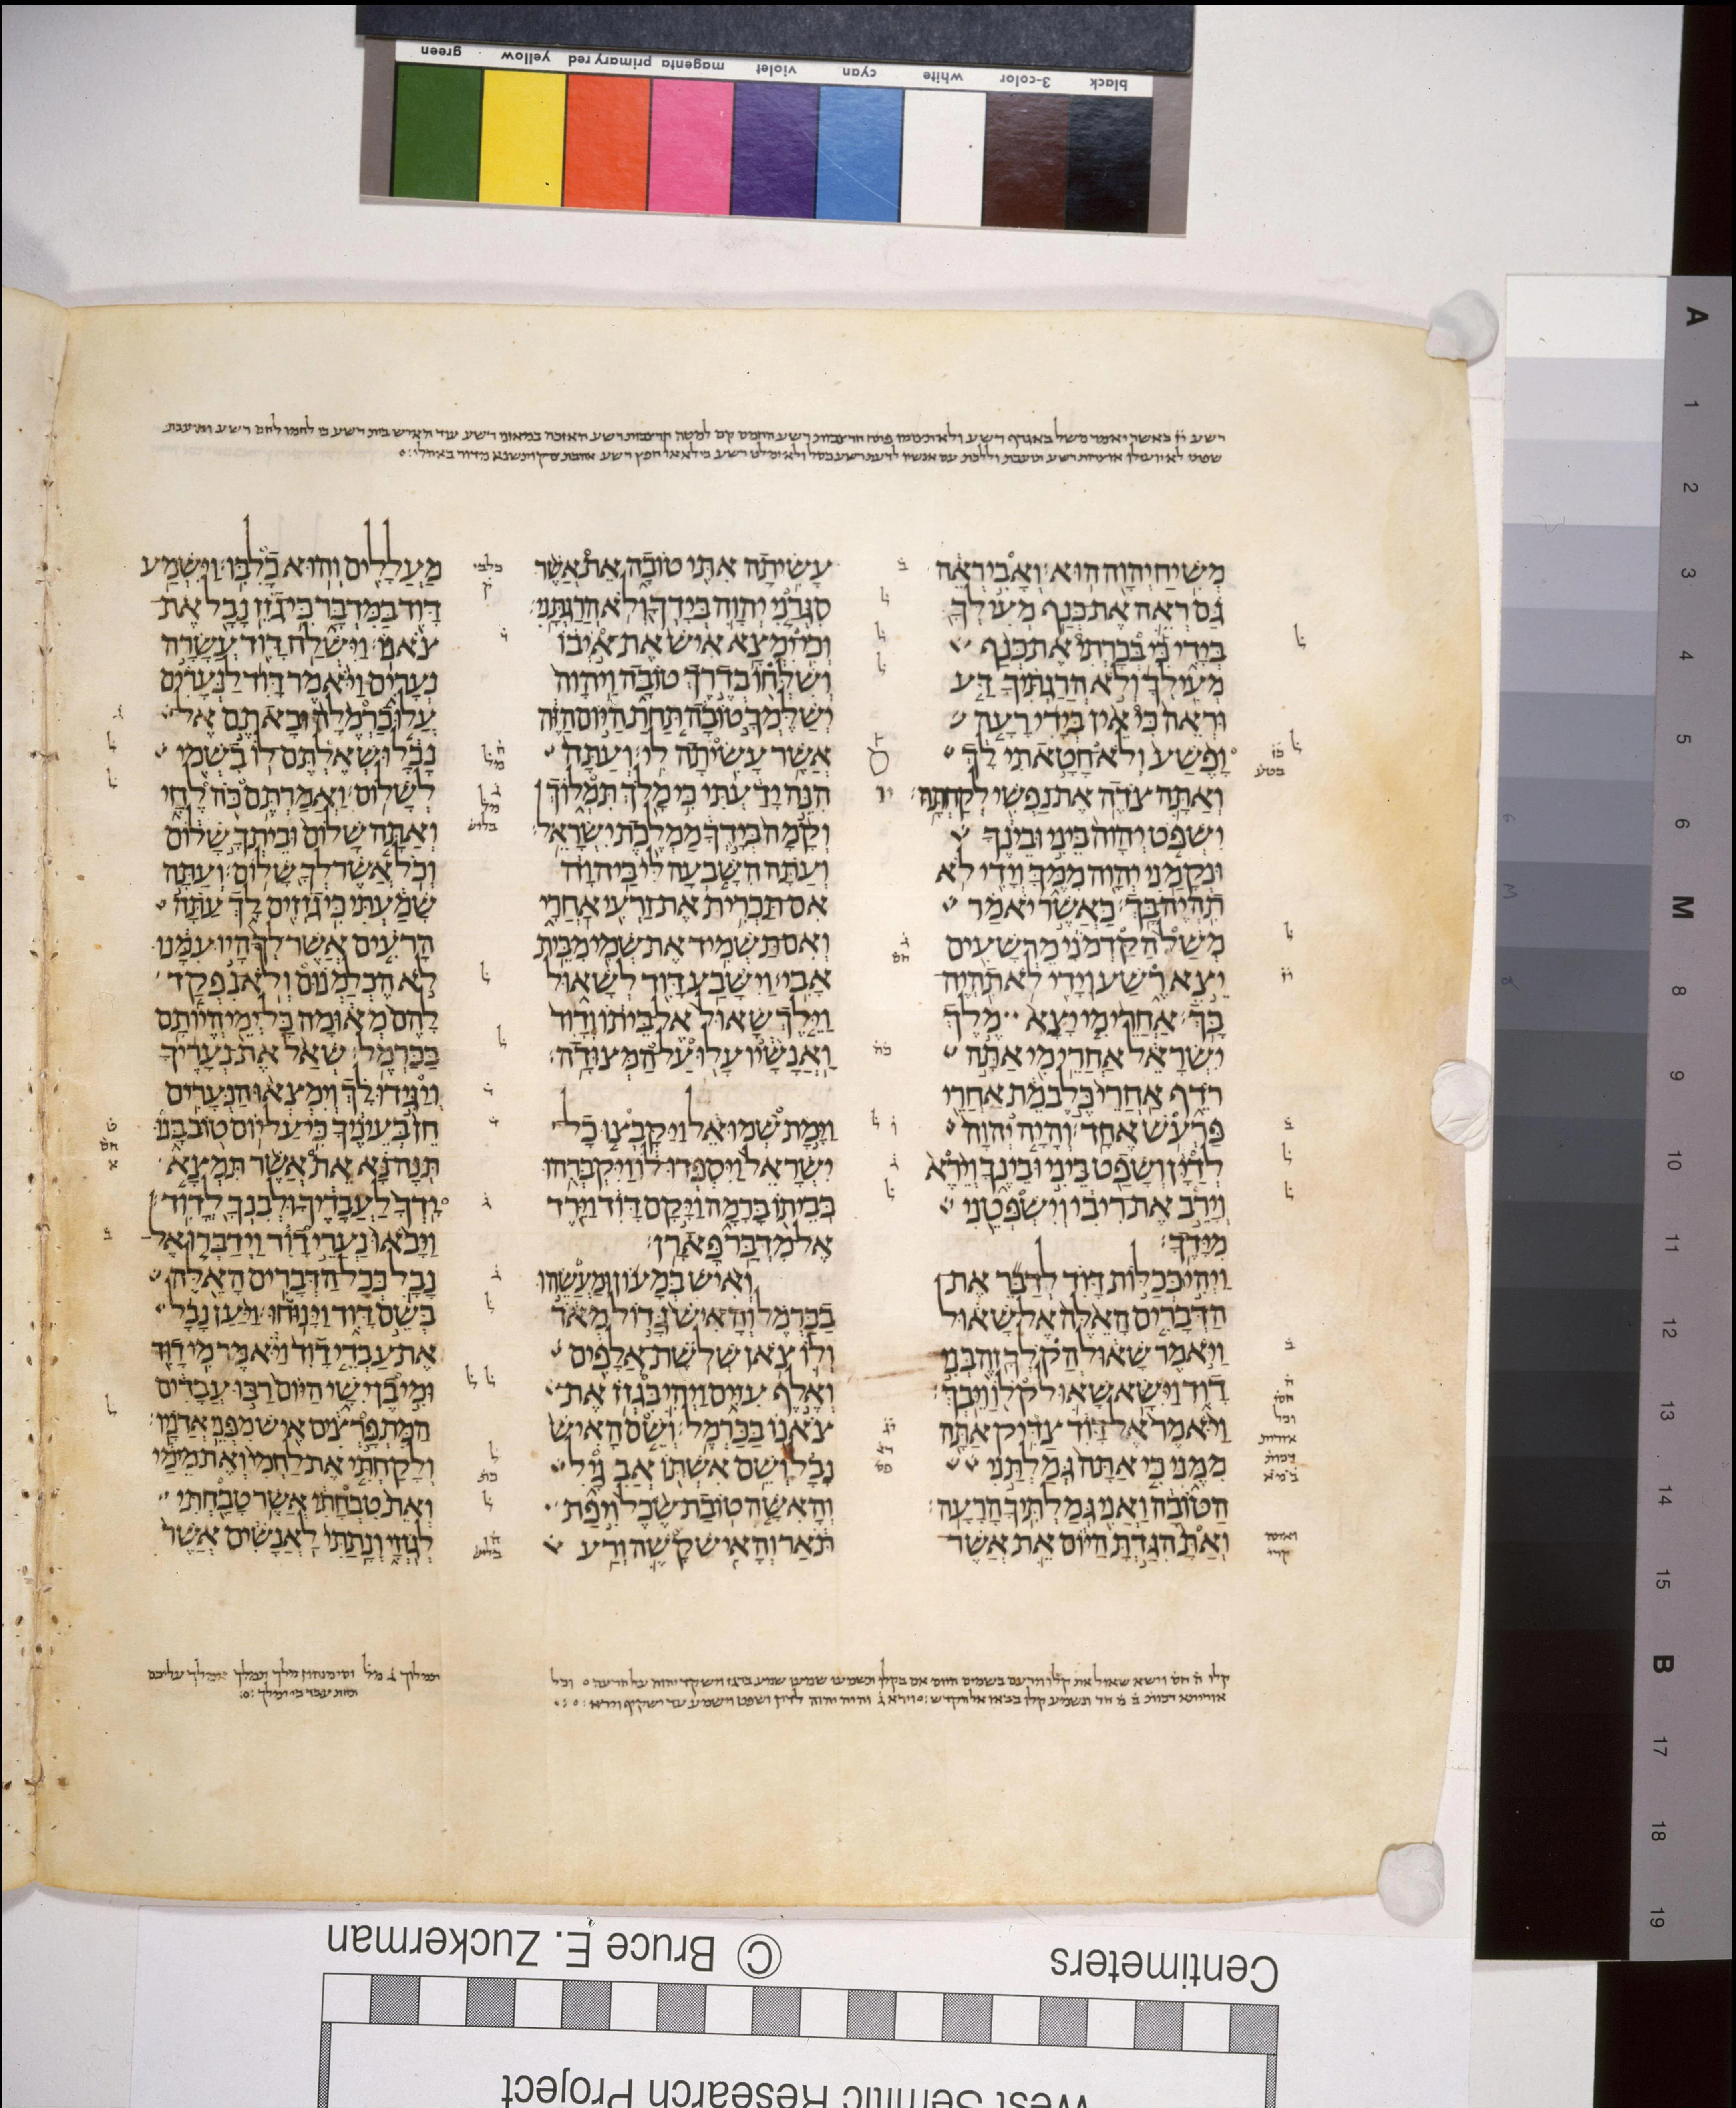 green yellow primary red magenta violet cyan white 3-color black
מְשִׁיחַ יְהוָה הוּא׃ וְאָבִי רְאֵה
גַּם רְאֵה אֶת כְּנַף מְעִילְךָ
בְּיָדִי כִּי בְּכָרְתִי אֶת כְּנַף
מְעִילְךָ וְלֹא הֲרַגְתִּיךָ דַּע
וּרְאֵה כִּי אֵין בְּיָדִי רָעָה
וָפֶשַׁע וְלֹא חָטָאתִי לָךְ
וְאַתָּה צֹדֶה אֶת נַפְשִׁי לְקַחְתָּהּ׃
יִשְׁפֹּט יְהוָה בֵּינִי וּבֵינֶךָ
וּנְקָמַנִי יְהוָה מִמֶּךָּ וְיָדִי לֹא
תִהְיֶה בָּךְ׃ כַּאֲשֶׁר יֹאמַר
מְשַׁל הַקַּדְמֹנִי מֵרְשָׁעִים
יֵצֵא רֶשַׁע וְיָדִי לֹא תִהְיֶה
בָּךְ׃ אַחֲרֵי מִי יָצָא מֶלֶךְ
יִשְׂרָאֵל אַחֲרֵי מִי אַתָּה
רֹדֵף אַחֲרֵי כֶּלֶב מֵת אַחֲרֵי
פַּרְעֹשׁ אֶחָד׃ וְהָיָה יְהוָה
לְדַיָּן וְשָׁפַט בֵּינִי וּבֵינֶךָ וְיֵרֶא
וְיָרֵב אֶת רִיבִי וְיִשְׁפְּטֵנִי
מִיָּדֶךָ׃
וַיְהִי כְּכַלּוֹת דָּוִד לְדַבֵּר אֶת
הַדְּבָרִים הָאֵלֶּה אֶל שָׁאוּל
וַיֹּאמֶר שָׁאוּל הֲקֹלְךָ זֶה בְּנִי
דָוִד וַיִּשָּׂא שָׁאוּל קֹלוֹ וַיֵּבְךְּ׃
וַיֹּאמֶר אֶל דָּוִד צַדִּיק אַתָּה
מִמֶּנִּי כִּי אַתָּה גְּמַלְתַּנִי
הַטּוֹבָה וַאֲנִי גְּמַלְתִּיךָ הָרָעָה׃
וְאַתְּ הִגַּדְתָּ הַיּוֹם אֵת אֲשֶׁר
עָשִׂיתָה אִתִּי טוֹבָה אֵת אֲשֶׁר
סִגְּרַנִי יְהוָה בְּיָדְךָ וְלֹא הֲרַגְתָּנִי׃
וְכִי יִמְצָא אִישׁ אֶת אֹיְבוֹ
וְשִׁלְּחוֹ בְּדֶרֶךְ טוֹבָה וַיהוָה
יְשַׁלֶּמְךָ טוֹבָה תַּחַת הַיּוֹם הַזֶּה
אֲשֶׁר עָשִׂיתָה לִי׃ וְעַתָּה
הִנֵּה יָדַעְתִּי כִּי מָלֹךְ תִּמְלוֹךְ
וְקָמָה בְּיָדְךָ מַמְלֶכֶת יִשְׂרָאֵל׃
וְעַתָּה הִשָּׁבְעָה לִּי בַּיהוָה
אִם תַּכְרִית אֶת זַרְעִי אַחֲרָי
וְאִם תַּשְׁמִיד אֶת שְׁמִי מִבֵּית
אָבִי׃ וַיִּשָּׁבַע דָּוִד לְשָׁאוּל
וַיֵּלֶךְ שָׁאוּל אֶל בֵּיתוֹ וְדָוִד
וַאֲנָשָׁיו עָלוּ עַל הַמְּצוּדָה׃
וַיָּמָת שְׁמוּאֵל וַיִּקָּבְצוּ כָל
יִשְׂרָאֵל וַיִּסְפְּדוּ לוֹ וַיִּקְבְּרֻהוּ
בְּבֵיתוֹ בָּרָמָה וַיָּקָם דָּוִד וַיֵּרֶד
אֶל מִדְבַּר פָּארָן׃
וְאִישׁ בְּמָעוֹן וּמַעֲשֵׂהוּ
בַכַּרְמֶל וְהָאִישׁ גָּדוֹל מְאֹד
וְלוֹ צֹאן שְׁלֹשֶׁת אֲלָפִים
וְאֶלֶף עִזִּים וַיְהִי בִּגְזֹז אֶת
צֹאנוֹ בַּכַּרְמֶל׃ וְשֵׁם הָאִישׁ
נָבָל וְשֵׁם אִשְׁתּוֹ אֲבִגָיִל
וְהָאִשָּׁה טוֹבַת שֶׂכֶל וִיפַת
תֹּאַר וְהָאִישׁ קָשֶׁה וְרַע
מַעֲלָלִים וְהוּא כָלִבּוֹ׃ וַיִּשְׁמַע
דָּוִד בַּמִּדְבָּר כִּי גֹזֵז נָבָל אֶת
צֹאנוֹ׃ וַיִּשְׁלַח דָּוִד עֲשָׂרָה
נְעָרִים וַיֹּאמֶר דָּוִד לַנְּעָרִים
עֲלוּ כַרְמֶלָה וּבָאתֶם אֶל
נָבָל וּשְׁאֶלְתֶּם לוֹ בִשְׁמִי
לְשָׁלוֹם׃ וַאֲמַרְתֶּם כֹּה לֶחָי
וְאַתָּה שָׁלוֹם וּבֵיתְךָ שָׁלוֹם
וְכֹל אֲשֶׁר לְךָ שָׁלוֹם׃ וְעַתָּה
שָׁמַעְתִּי כִּי גֹזְזִים לָךְ עַתָּה
הָרֹעִים אֲשֶׁר לְךָ הָיוּ עִמָּנוּ
לֹא הֶכְלַמְנוּם וְלֹא נִפְקַד
לָהֶם מְאוּמָה כָּל יְמֵי הֱיוֹתָם
בַּכַּרְמֶל׃ שְׁאַל אֶת נְעָרֶיךָ
וְיַגִּידוּ לָךְ וְיִמְצְאוּ הַנְּעָרִים
חֵן בְּעֵינֶיךָ כִּי עַל יוֹם טוֹב בָּנוּ
תְּנָה נָּא אֵת אֲשֶׁר תִּמְצָא
יָדְךָ לַעֲבָדֶיךָ וּלְבִנְךָ לְדָוִד׃
וַיָּבֹאוּ נַעֲרֵי דָוִד וַיְדַבְּרוּ אֶל
נָבָל כְּכָל הַדְּבָרִים הָאֵלֶּה
בְּשֵׁם דָּוִד וַיָּנוּחוּ׃ וַיַּעַן נָבָל
אֶת עַבְדֵי דָוִד וַיֹּאמֶר מִי דָוִד
וּמִי בֶן יִשָׁי הַיּוֹם רַבּוּ עֲבָדִים
הַמִּתְפָּרְצִים אִישׁ מִפְּנֵי אֲדֹנָיו׃
וְלָקַחְתִּי אֶת לַחְמִי וְאֶת מֵימַי
וְאֵת טִבְחָתִי אֲשֶׁר טָבַחְתִּי
לְגֹזְזָי וְנָתַתִּי לַאֲנָשִׁים אֲשֶׁר
A 1 2 3 4 5 6 M 8 9 10 11 12 13 14 15 B 17 18 19
Centimeters © Bruce E. Zuckerman
West Semitic Research Project